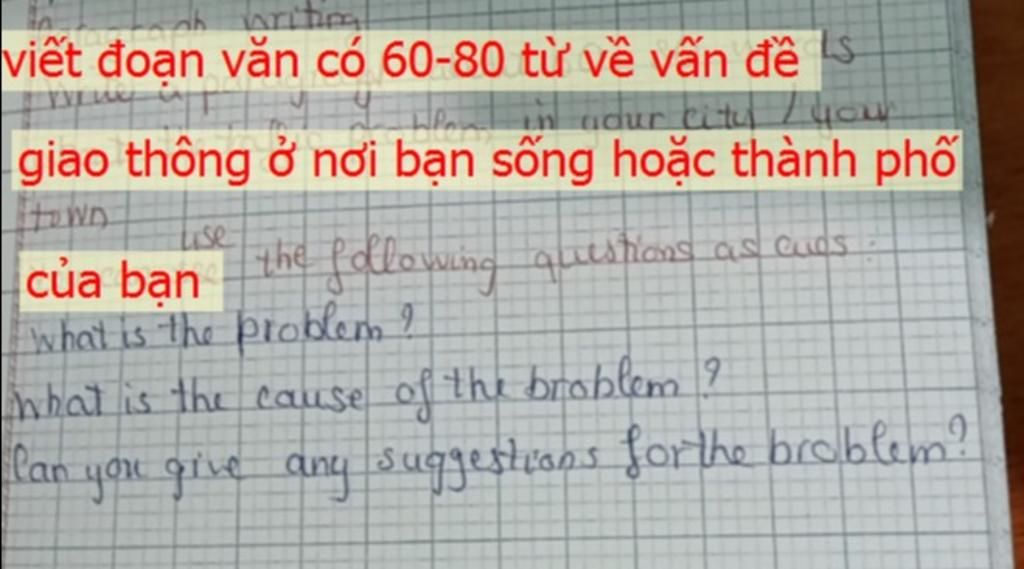 Paragraph writing
viết đoạn văn có 60-80 từ về vấn đề
Write a paragraph
problem in your city / your
giao thông ở nơi bạn sống hoặc thành phố
town
use the following questions as cues:
của bạn
What is the problem?
What is the cause of the broblem?
Can you give any suggestions for the broblem?